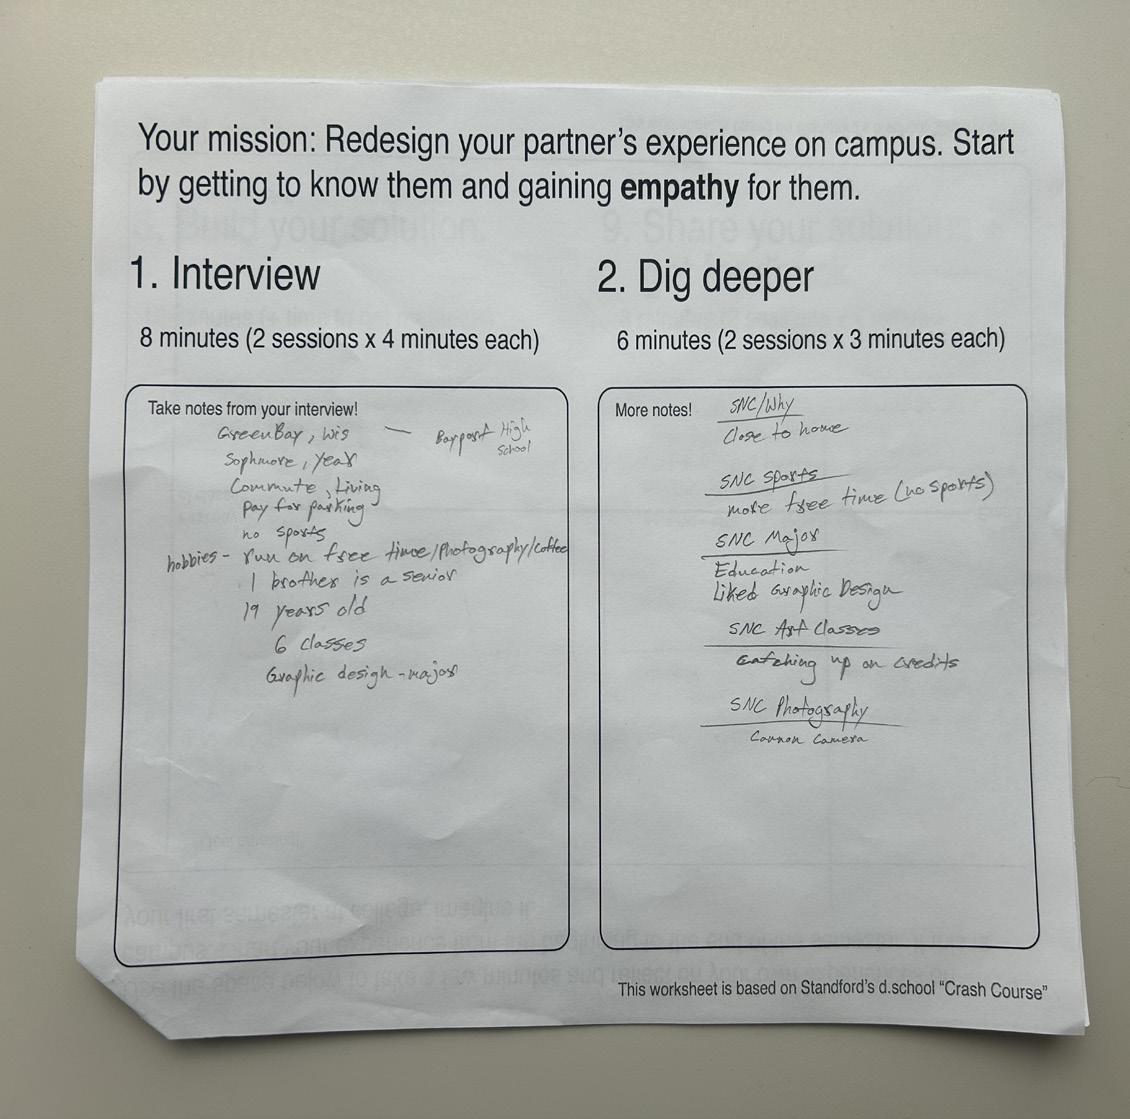 Your mission: Redesign your partner's experience on campus. Start
by getting to know them and gaining empathy for them.
1. Interview
8 minutes (2 sessions x 4 minutes each)
Take notes from your interview!
GreenBay, Wis — Bayport High
School
Sophmore, year
Commute, Living
Pay for parking
no sports
hobbies - run on free time/Photography/Coffee
1 brother is a senior
19 years old
6 classes
Graphic design - major
2. Dig deeper
6 minutes (2 sessions x 3 minutes each)
More notes!
SNC/Why
Close to home
SNC Sports
more free time (no sports)
SNC Major
Education
Liked Graphic Design
SNC Art Classes
Catching up on credits
SNC Photography
Cannon Camera
This worksheet is based on Standford's d.school "Crash Course"